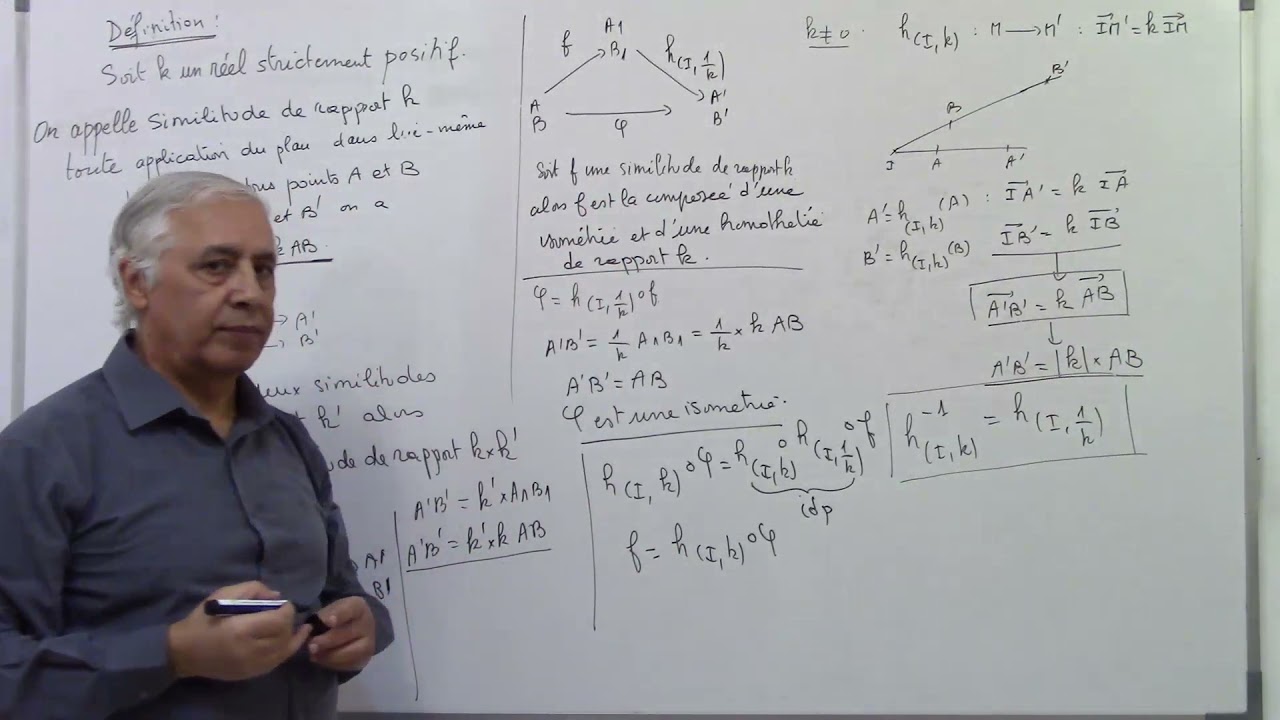 Définition :
Soit k un réel strictement positif.
On appelle Similitude de rapport k
toute application du plan dans lui-même
points A et B
et B' on a
k AB.
→ A'
→ B'
deux similitudes
et k' alors
de rapport k×k'
A'B' = k' × A₁B₁
A'B' = k' × k AB
A'
B'
A1
B₁
f
h(I, 1/k)
A
B
φ
A'
B'
Soit f une similitude de rapport k
alors f est la composeé d'une
isométrie et d'une homothetie
de rapport k.
φ = h(I, 1/k) ∘ f
A'B' = 1/k A₁B₁ = 1/k × k AB
A'B' = AB
φ est une isometrie.
h(I, k) ∘ φ = h(I, k) ∘ h(I, 1/k) ∘ f
idp
f = h(I, k) ∘ φ
k ≠ 0. h(I, k) : M → M' : IM⃗' = k IM⃗
B'
B
I A A'
A' = h(I, k) (A) : IA⃗' = k IA⃗
B' = h(I, k) (B) IB⃗' = k IB⃗
A'B'⃗ = k AB⃗
A'B' = |k| × AB
h⁻¹(I, k) = h(I, 1/k)